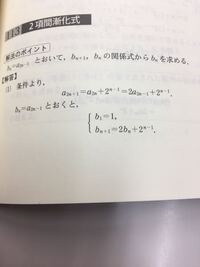 2項間漸化式
解法のポイント
bₙ=a₂ₙ₋₁ とおいて, bₙ₊₁, bₙ の関係式から bₙ を求める.
【解答】
(1) 条件より,
a₂ₙ₊₁=a₂ₙ+2ⁿ⁻¹=2a₂ₙ₋₁+2ⁿ⁻¹.
bₙ=a₂ₙ₋₁ とおくと,
{ b₁=1,
bₙ₊₁=2bₙ+2ⁿ⁻¹.